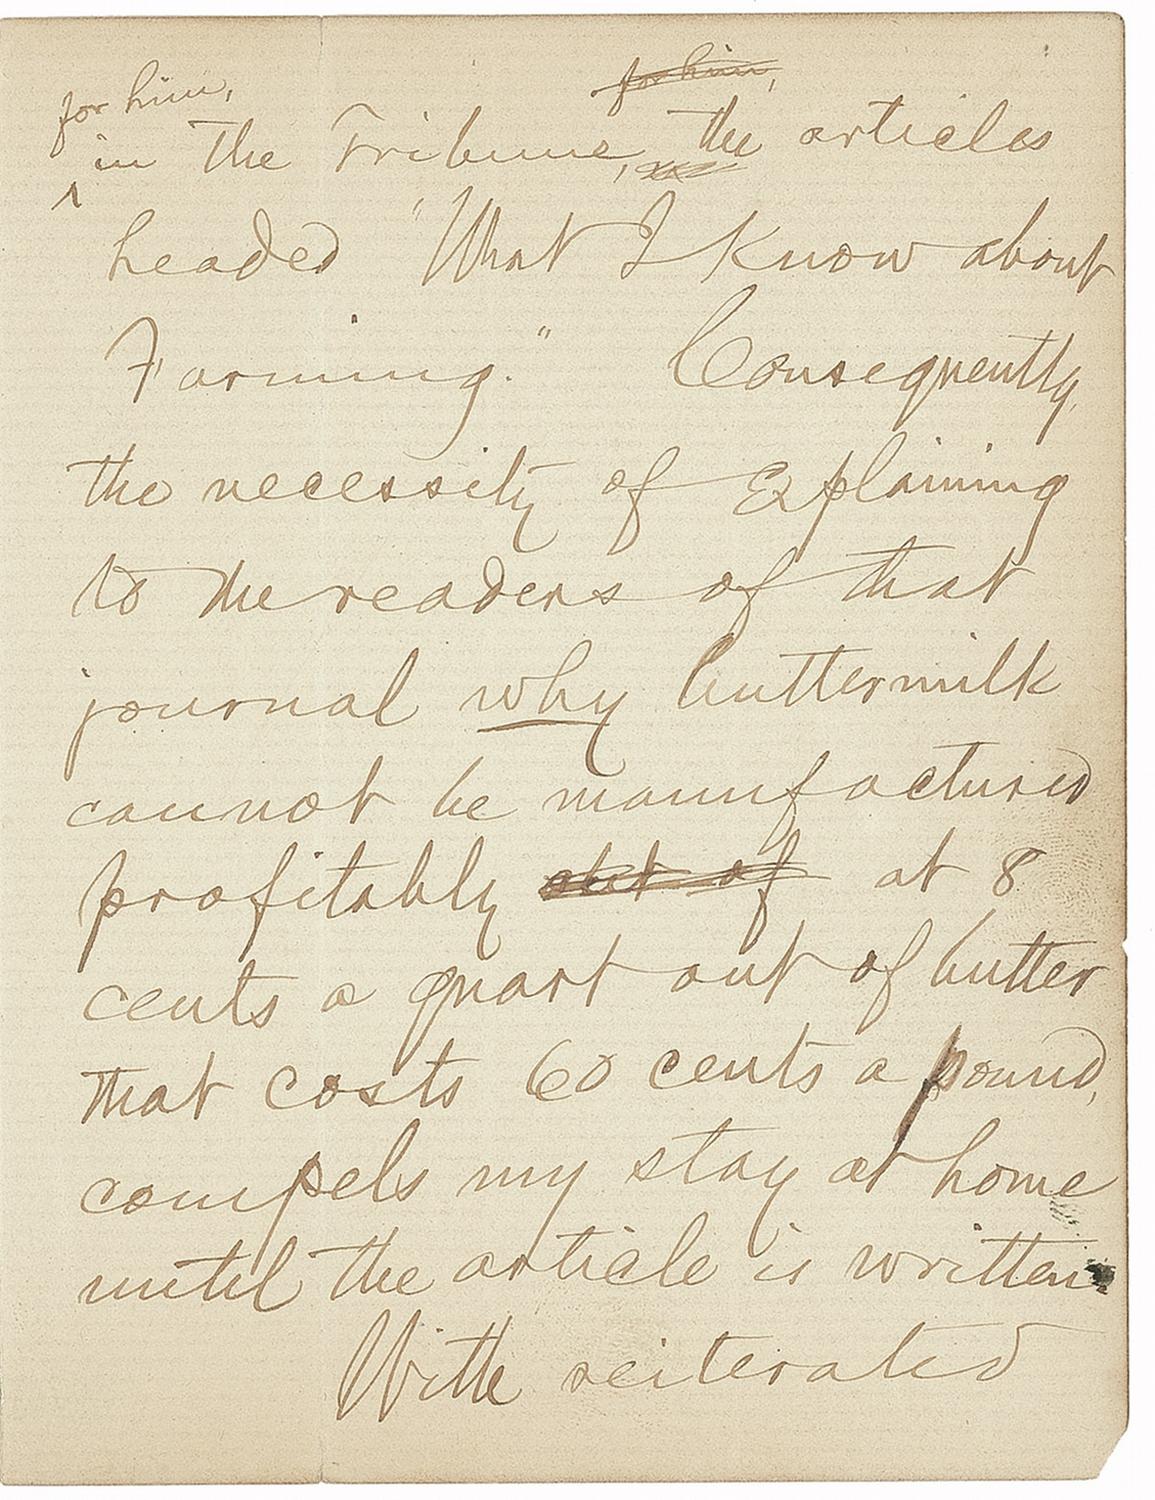 for him, for him,
in the Tribune, the articles
headed "What I Know about
Farming." Consequently,
the necessity of Explaining
to the readers of that
journal why buttermilk
cannot be manufactured
profitably out of at 8
cents a quart out of butter
that costs 60 cents a pound,
compels my stay at home
until the article is written.
With reiterated